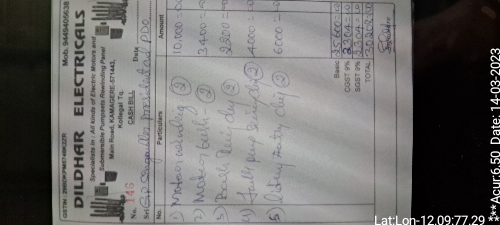 GSTIN: 29BDKPM5748K2ZR
Mob. 9449405638
DILDHAR ELECTRICALS
Specialists in: All kinds of Electric Motors and
Submersible Pumpsets Rewinding Panel
Main Road, KAMAGERE-571443,
Kollegal Tq.
CASH BILL
No. 146
Date
Sri G.P. president and PDO
No. Particulars Amount
1) Motor winding 10,000=00
2) Motor 3400=00
3) 2200=00
4) 4000=00
5) 6000=00
Basic 25,600=00
CGST 9% 2304=00
SGST 9% 2304=00
TOTAL 30208=00
Lat:Lon-12.09:77.29
*** Agur:6.50 Date:14-03-2023